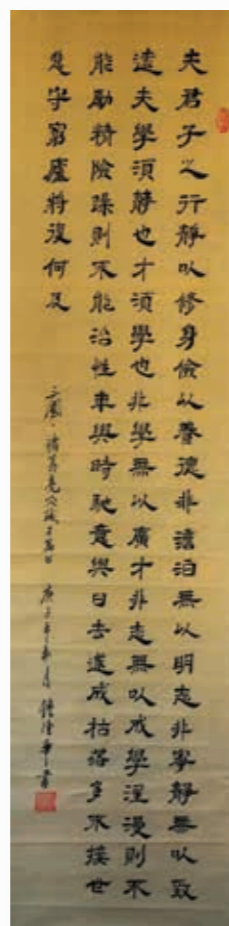 夫君子之行靜以修身儉以養德非澹泊無以明志非寧靜無以致
遠夫學須靜也才須學也非學無以廣才非志無以成學淫漫則不
能勵精險躁則不能治性年與時馳意與日去遂成枯落多不接世
悲守窮廬將復何及
三國 諸葛亮 庚子年 月 書